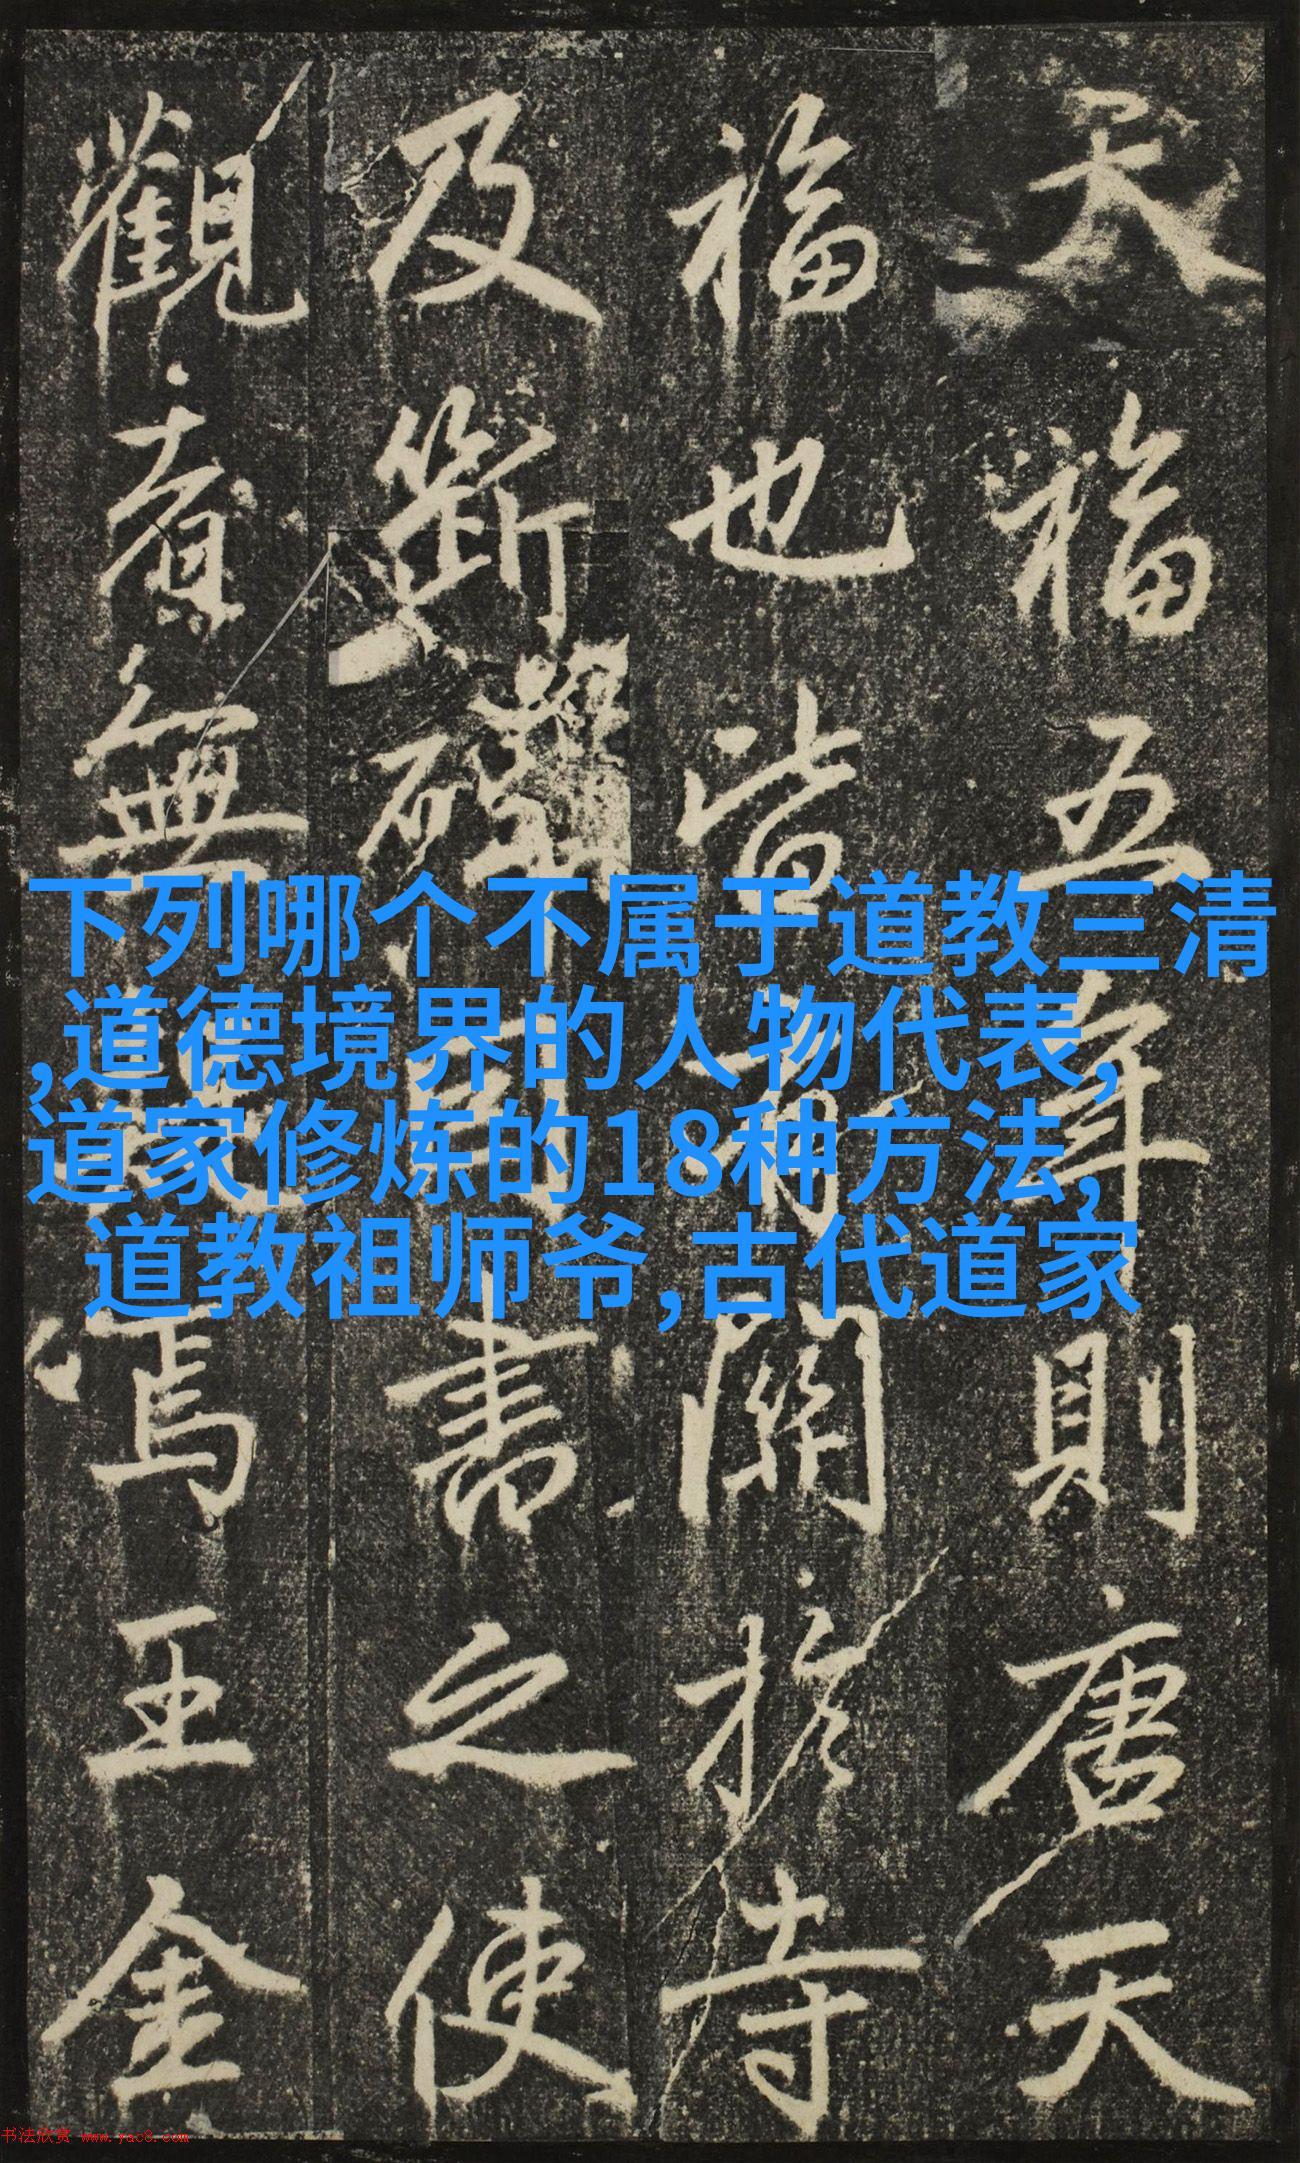 天福五年則唐天
福也皆有關扵寺
及斷碑司書之使
觀無焉王金
下列哪个不属于道教三清
,道德境界的人物代表,
道家修炼的18种方法,
道教祖师爷,古代道家
书法欣赏 www.yac8.com